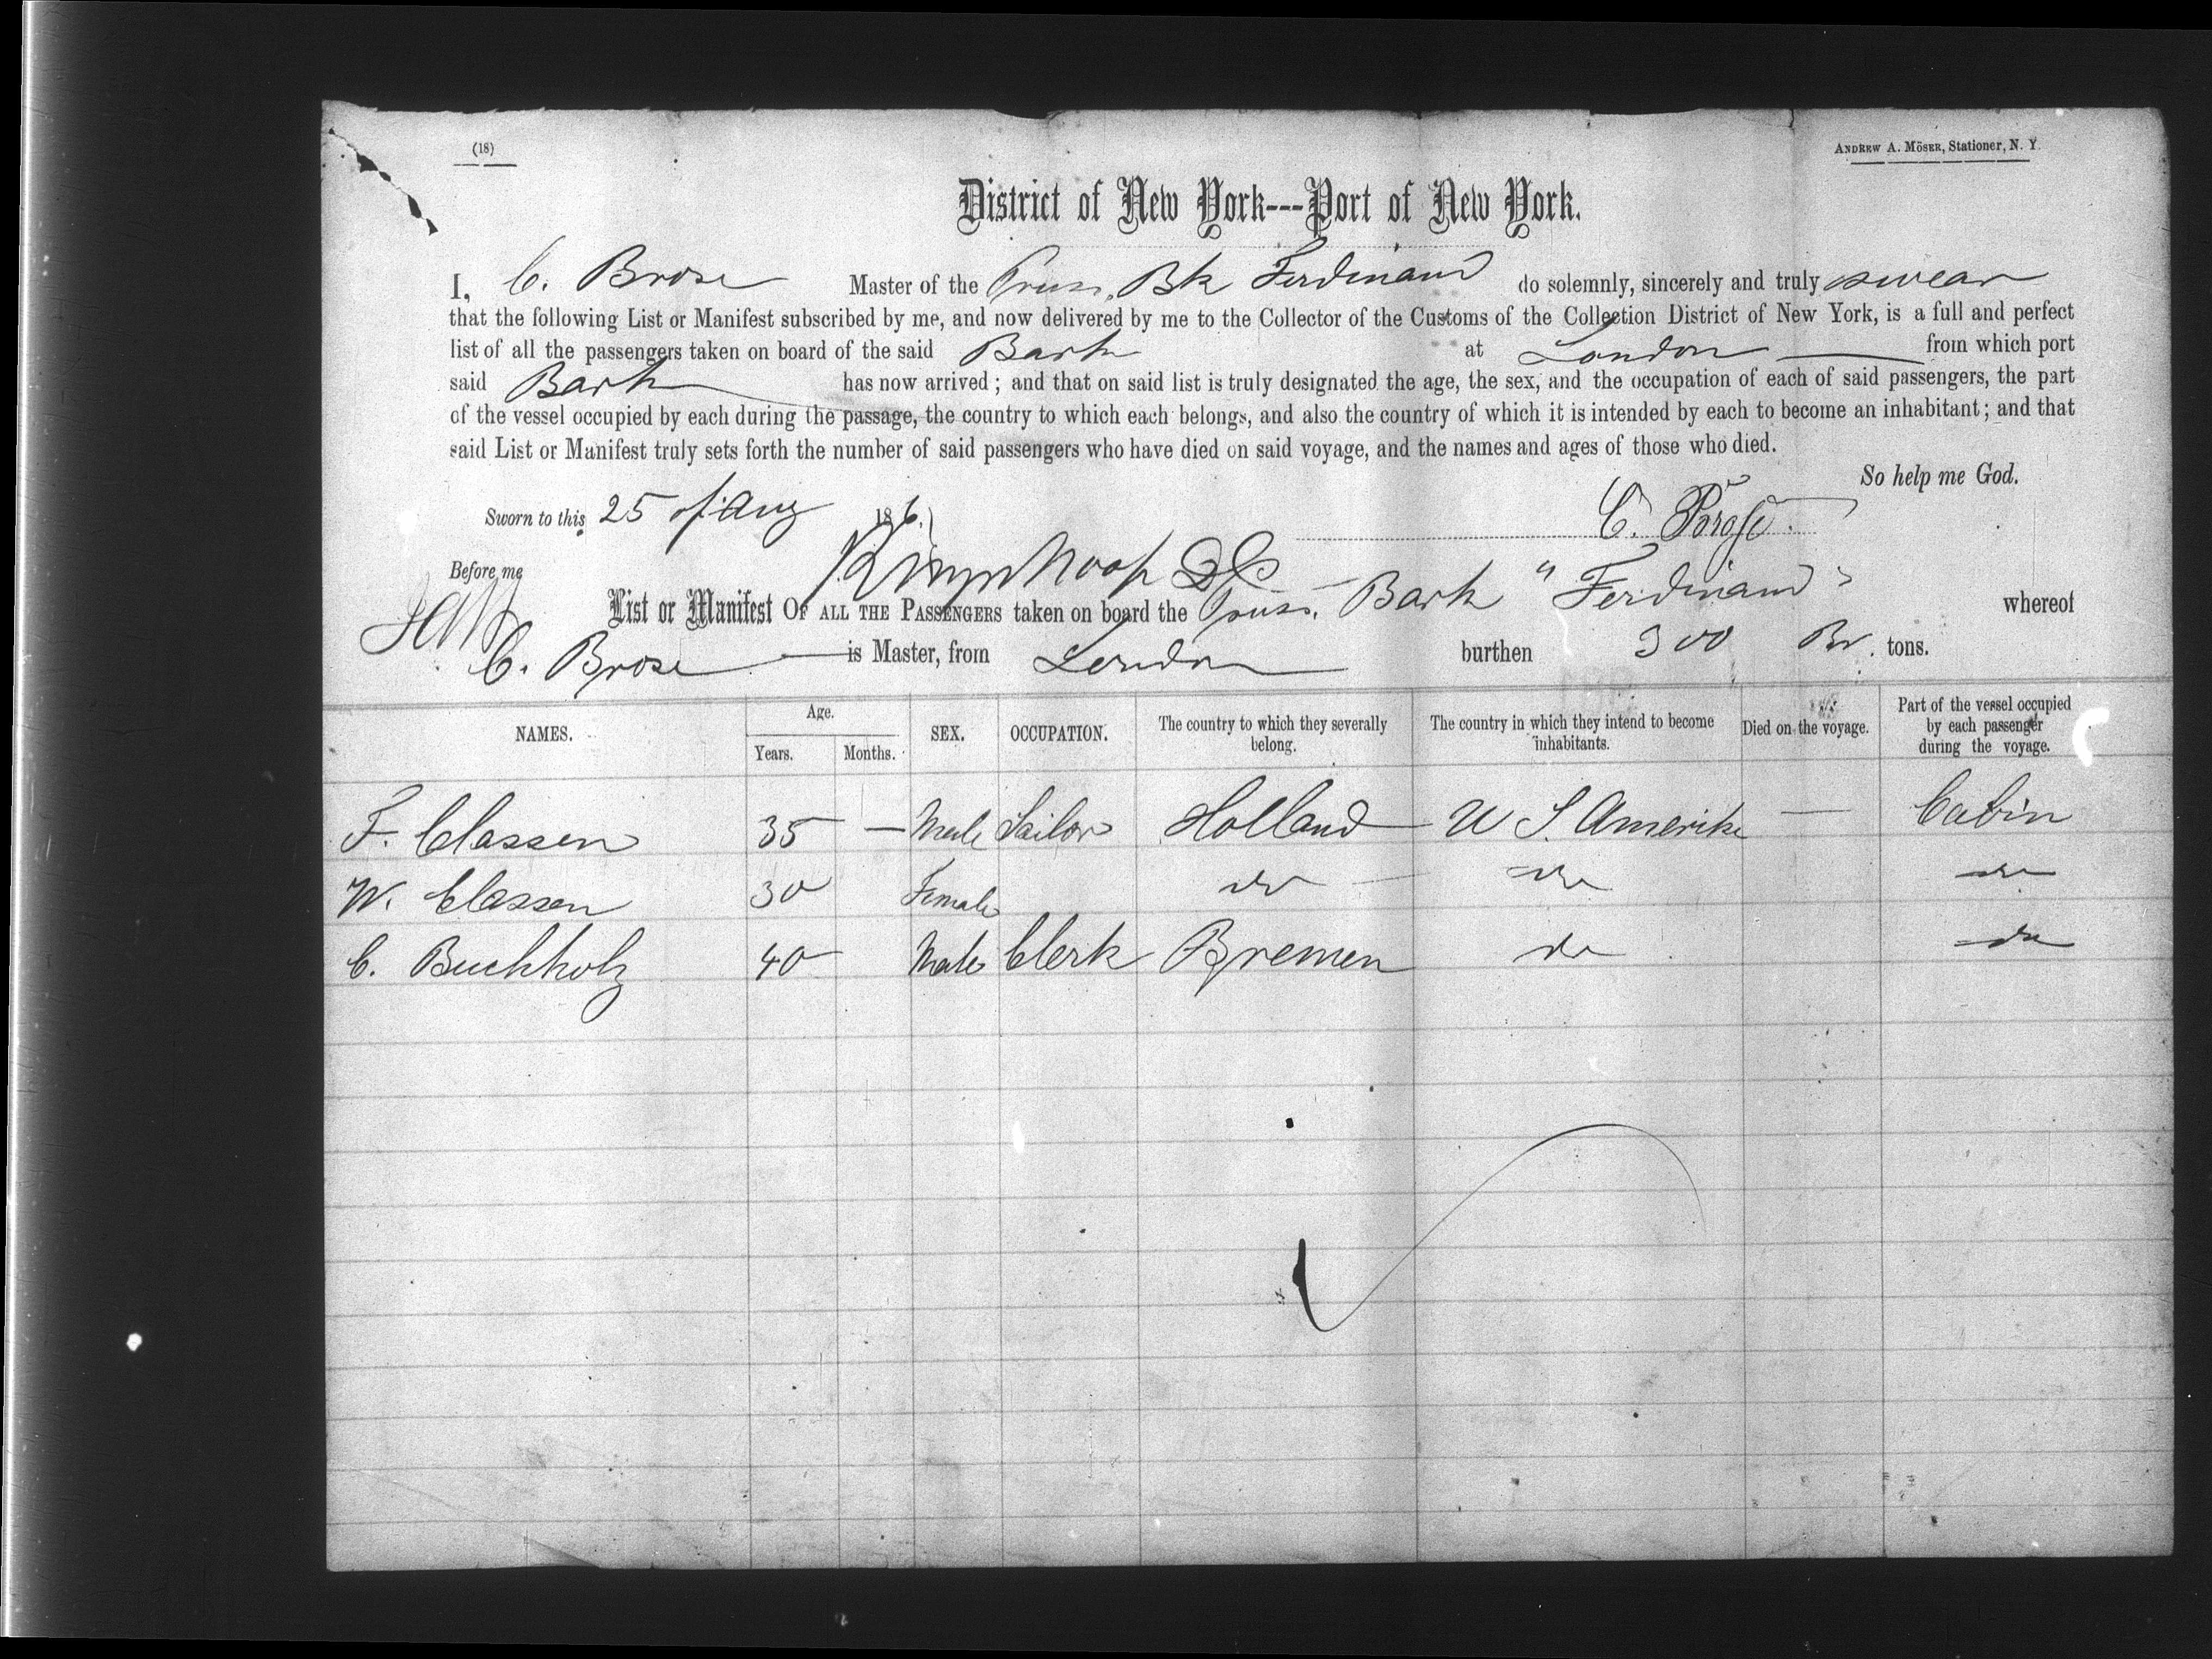 (18)
ANDREW A. MÖSER, Stationer, N. Y.
District of New York---Port of New York.
I, C. Brose Master of the Pruss. Bk Ferdinand do solemnly, sincerely and truly swear
that the following List or Manifest subscribed by me, and now delivered by me to the Collector of the Customs of the Collection District of New York, is a full and perfect
list of all the passengers taken on board of the said Bark at London from which port
said Bark has now arrived; and that on said list is truly designated the age, the sex, and the occupation of each of said passengers, the part
of the vessel occupied by each during the passage, the country to which each belongs, and also the country of which it is intended by each to become an inhabitant; and that
said List or Manifest truly sets forth the number of said passengers who have died on said voyage, and the names and ages of those who died.
So help me God.
Sworn to this 25 of Aug 186
C. Brose.
Before me
List or Manifest OF ALL THE PASSENGERS taken on board the Pruss. Bark "Ferdinand" whereof
C. Brose is Master, from London burthen 300 Br. tons.
NAMES. Age. Years. Months. SEX. OCCUPATION. The country to which they severally belong. The country in which they intend to become inhabitants. Died on the voyage. Part of the vessel occupied by each passenger during the voyage.
F. Classen 35 — Male Sailor Holland U S. Amerika — Cabin
W. Classen 30 Female do do do
C. Buchholz 40 Male Clerk Bremen do do